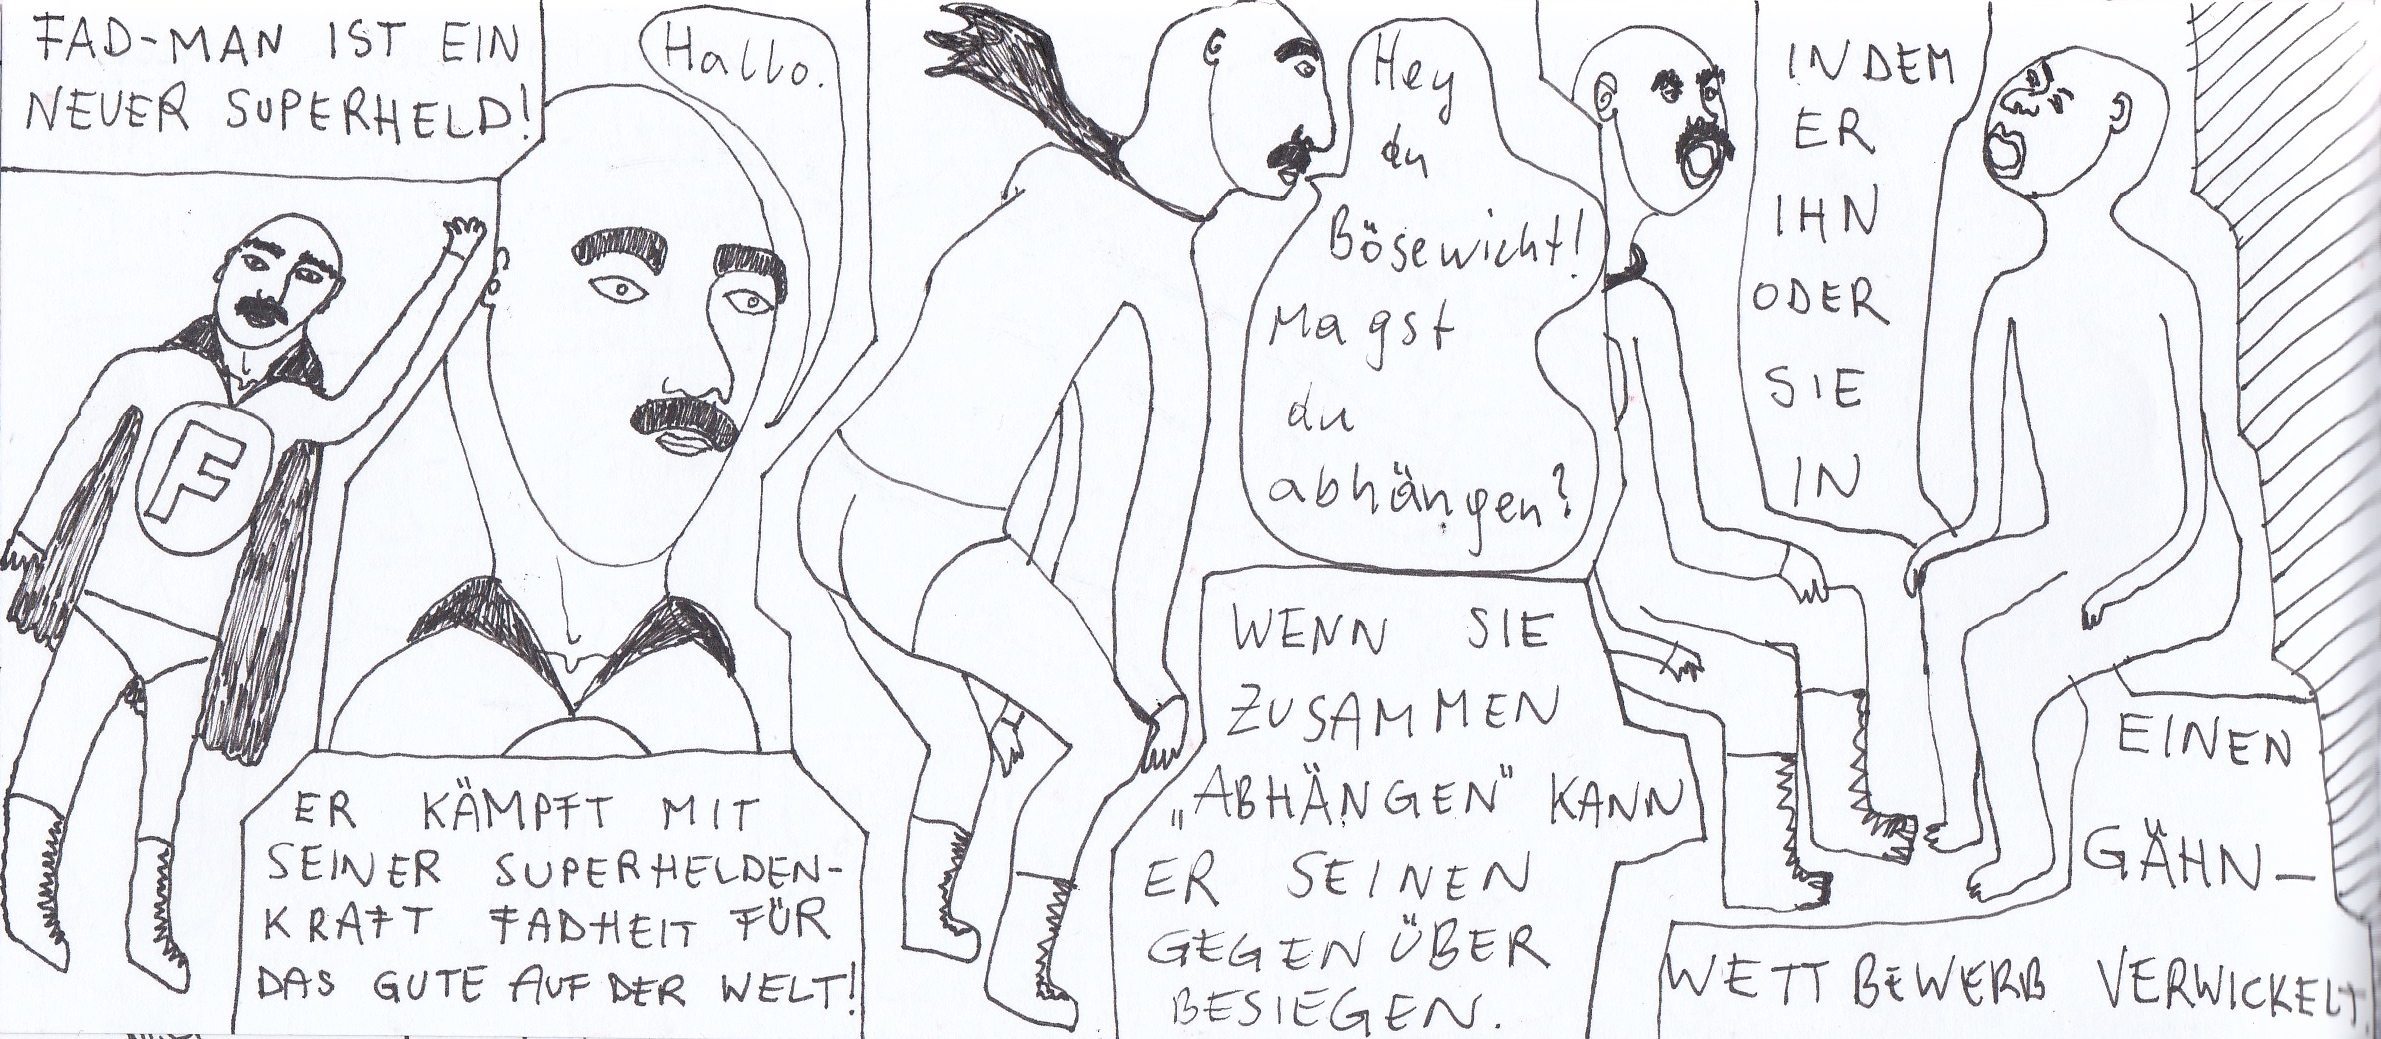 FAD-MAN IST EIN
NEUER SUPERHELD!
F
Hallo.
ER KÄMPFT MIT
SEINER SUPERHELDEN-
KRAFT FADHEIT FÜR
DAS GUTE AUF DER WELT!
Hey
du
Bösewicht!
Magst
du
abhängen?
WENN SIE
ZUSAMMEN
„ABHÄNGEN" KANN
ER SEINEN
GEGENÜBER
BESIEGEN.
INDEM
ER
IHN
ODER
SIE
IN
EINEN
GÄHN-
WETTBEWERB VERWICKELT.